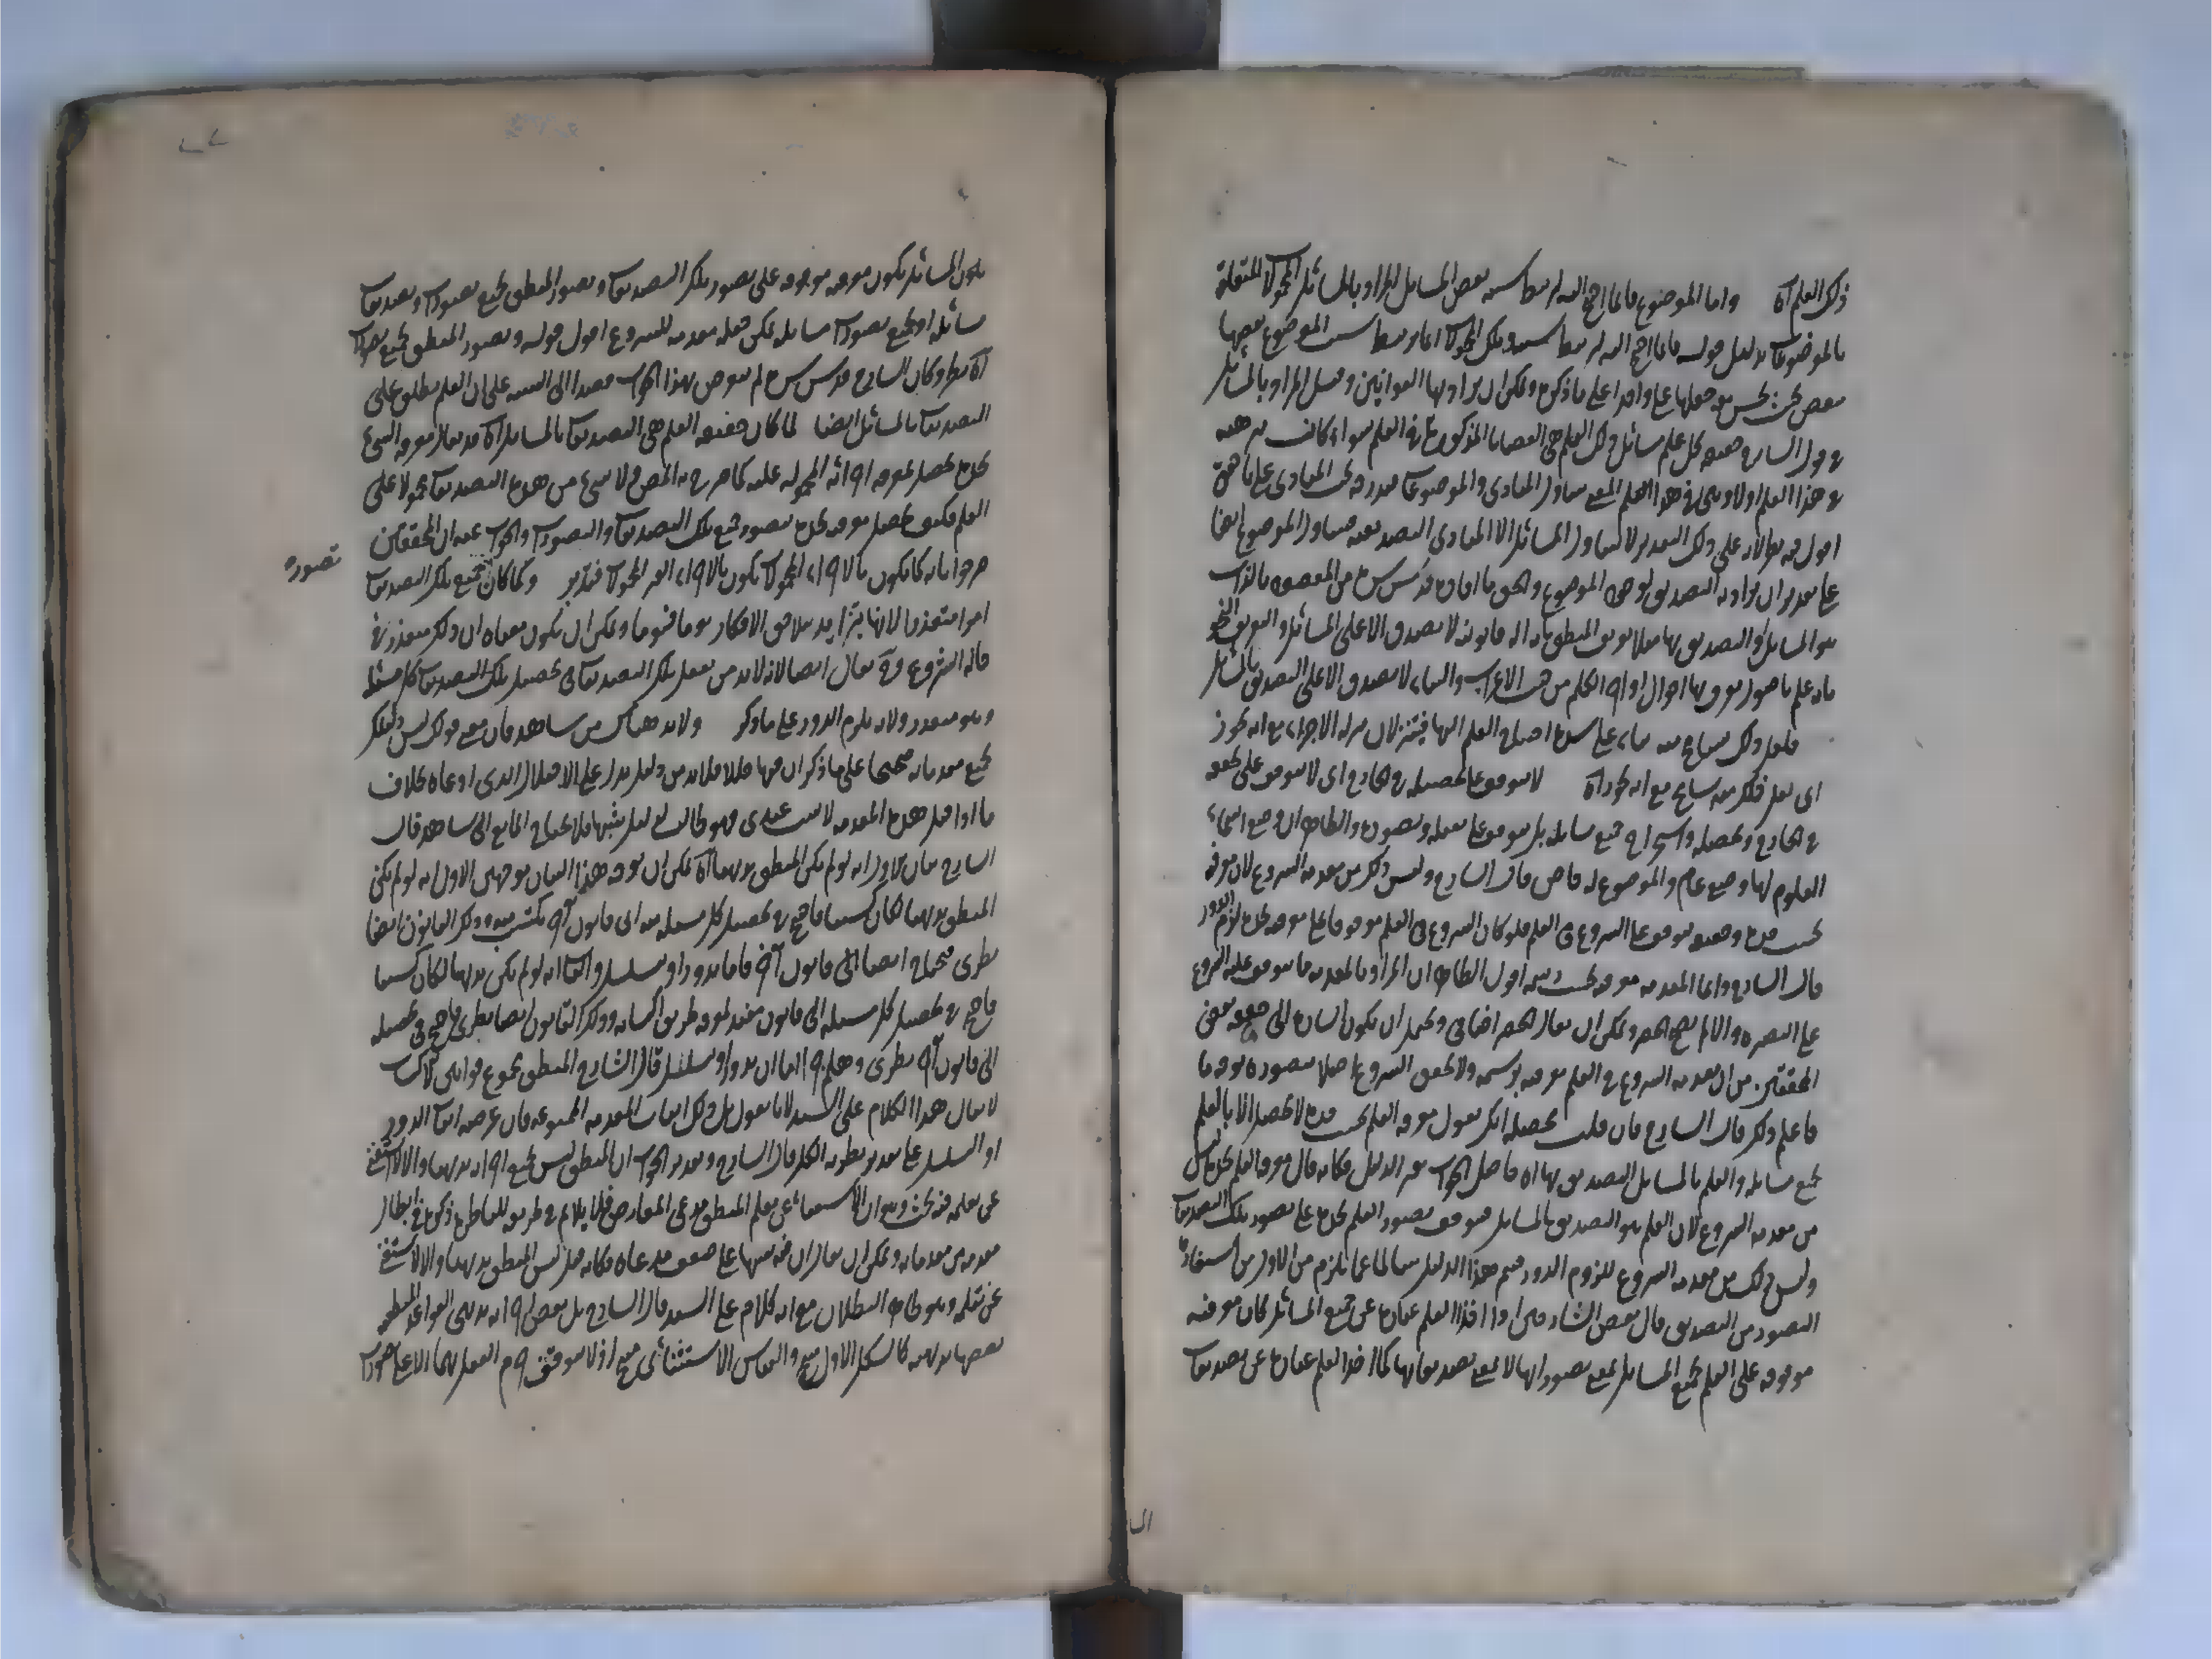 ذلك العلم آه واما الموضوع فانما احتيج اليه ليرتبط بسببه بعض المسائل المراد بالمسائل المحمولات المتعلقة
بالموضوعات بدليل قوله فانما احتيج اليه ليرتبط بسببه وتلك المحمولات انما يرتبط بسبب الموضوع بعضها
ببعض بحيث يحسن جعلها علما واحدا على ما ذكره ويمكن ان يراد بها القوانين وقيل المراد بالمسائل
في قول الشارح حقيقة كل علم مسائل ذلك العلم هي القضايا المذكورة في العلم سواء كانت
في هذا العلم اولا العلم المعنى يتناول المبادى والموضوعات مندرجة تحت المبادى على ما حقق
اقول فيه نظر لانه على ذلك التقدير لا يتناول المسائل الا المبادى التصديقية فيتناول الموضوع ايضا
على تقدير ان يراد به التصديق بوجود الموضوع والحق ما افاده قدس سره من المقصود بالذات
هو المسائل والتصديق بها مثلا تعريف المنطق بانه آلة قانونية لا يصدق الا على المسائل وتعريف النحو
بانه علم باصول يعرف بها احوال اواخر الكلم من حيث الاعراب والبناء لا يصدق الا على التصديق بالمسائل
فلعل ذلك تسامح منه بناء على شدة احتياج العلم اليها فينزلان منزلة الاجزاء مع انه يجوز
اى لعل ذلك منه تسامح مع انه يجوز آه لا يتوقف على تحصيله في الخارج اى لا يتوقف على تحققه
في الخارج وتحصيله واستخراج جميع مسائله بل يتوقف على تعقله وتصوره والظاهر ان وضع اسماء
العلوم لها وضع عام والموضوع له خاص قال الشارح وليس ذلك من مقدمة الشروع لان معرفته
بحسب حده وحقيقته يتوقف على الشروع في العلم فلو كان الشروع في العلم موقوفا على معرفته بحده لزم الدور
قال الشارح وانما المقدمة معرفته بحسب رسمه اقول الظاهر ان المراد بالمقدمة ما يتوقف عليه الشروع
على البصيرة والا لم يصح الحصر ويمكن ان يقال الحصر اضافى ويحتمل ان يكون اشارة الى ضعف بعض
المحققين من ان مقدمة الشروع في العلم معرفته برسمه ولا يتحقق الشروع اصلا بتصوره بوجه ما
فاعلم ذلك قال الشارح فان قلت محصله انك تقول معرفة العلم بحسب حده لا يحصل الا بالعلم
بجميع مسائله والعلم بالمسائل التصديق بها آه حاصل الجواب تغيير الدليل فكانه قال معرفة العلم بحده ليس
من مقدمة الشروع لان العلم هو التصديق بالمسائل فيتوقف تصور العلم بحده على تصور تلك التصديقات
وليس ذلك من مقدمة الشروع للزوم الدور فيتم هذا الدليل سالما عما يلزم من الاول من استفادة
التصور من التصديق قال بعض الشارحين اذا اخذ العلم عبارة عن جميع المسائل كان معرفته
موقوفة على العلم بجميع المسائل بمعنى تصوراتها لا بمعنى تصديقاتها كما اخذ العلم عبارة عن تصديقات
الما
تلك المسائل يكون معرفته موقوفة على تصور تلك التصديقات وتصور المنطق بجميع تصورات وتصديقات
مسائله او بجميع تصورات مسائله يمكن جعله مقدمة للشروع اقول قوله وتصور المنطق بجميع تصورات
آه نظر وكان الشارح قدس سره لم يتعرض بهذا الجواب قصدا الى التنبيه على ان العلم يطلق على
التصديقات بالمسائل ايضا لما كان حقيقة العلم هى التصديقات بالمسائل آه قد يقال معرفة الشئ
بحده يحصل بمعرفة اجزائه المحمولة عليه كما صرح به المص ولا شئ من هذه التصديقات محمولا على
العلم فكيف يحصل معرفته بحده بتصور جميع تلك التصديقات والتصورات والجواب عنه ان المحققين
صرحوا بانه كما يكون بالاجزاء المحمولة يكون بالاجزاء الغير المحمولة فتدبر ولما كان جميع تلك التصديقات
تصوره
امرا متعذرا لانها يتزايد بتلاحق الافكار يوما فيوما ويمكن ان يكون معناه ان ذلك متعذر في
حالة الشروع وقد يقال ايضا لانه لابد من تعقل تلك التصديقات في تحصيل تلك التصديقات كل مسئلة
وهو متعذر ولانه يلزم الدور على ما ذكر ولابد هناك من شاهد فان معنى قولك ليس دليلك
بجميع مقدماته صحيحا على ما ذكر ان فيها خللا فلابد من دليل يدل على الاختلال الذى ادعاه بخلاف
ما اذا قيل هذه المقدمة لا يثبت عندى فهو طالب لدليل يثبتها فلا يحتاج المانع الى شاهد قال
الشارح بيان الاول انه لو لم يكن المنطق بديهيا آه يمكن ان يوجه هذا البيان بوجهين الاول انه لو لم يكن
المنطق بديهيا لكان كسبيا فاحتيج في تحصيل كل مسئلة منه الى قانون آخر يكتسب منه وذلك القانون ايضا
نظرى فيحتاج ايضا الى قانون آخر فاما يدور او يتسلسل والثانى انه لو لم يكن بديهيا لكان كسبيا
فاحتيج في تحصيل كل مسئلة الى قانون مفيد لمعرفة طريق اكتسابه وذلك القانون ايضا نظرى فاحتيج في تحصيله
الى قانون آخر نظرى وهلم جرا اما ان يدور او يتسلسل قال الشارح المنطق مجموع قوانين الاكتساب
لا يقال هذا الكلام على السند لانا نقول بل ذلك اثبات المقدمة الممنوعة فان غرضه اثبات الدور
او التسلسل على تقدير نظرية الكل قال الشارح وتقدير الجواب ان المنطق ليس بجميع اجزائه بديهيا والا لاستغنى
عن تعلمه فيه بحث وهو ان الاستغناء عن تعلم المنطق مدعى المعارض فلا يلائم في طريقة المناظرة ذكره في ابطال
مقدمة من مقدماته ويمكن ان يقال ان فيه تنبيها على ضعف مدعاه فكانه قيل ليس المنطق بديهيا والا لاستغنى
عن تعلمه وهو ظاهر البطلان مع انه كلام على السند قال الشارح بل بعض اجزائه بديهى القواعد المنطقية
بعضها بديهية كالشكل الاول والقياس الاستثنائى اذ لا يتوقف جزم العقل بها الا على تصورات